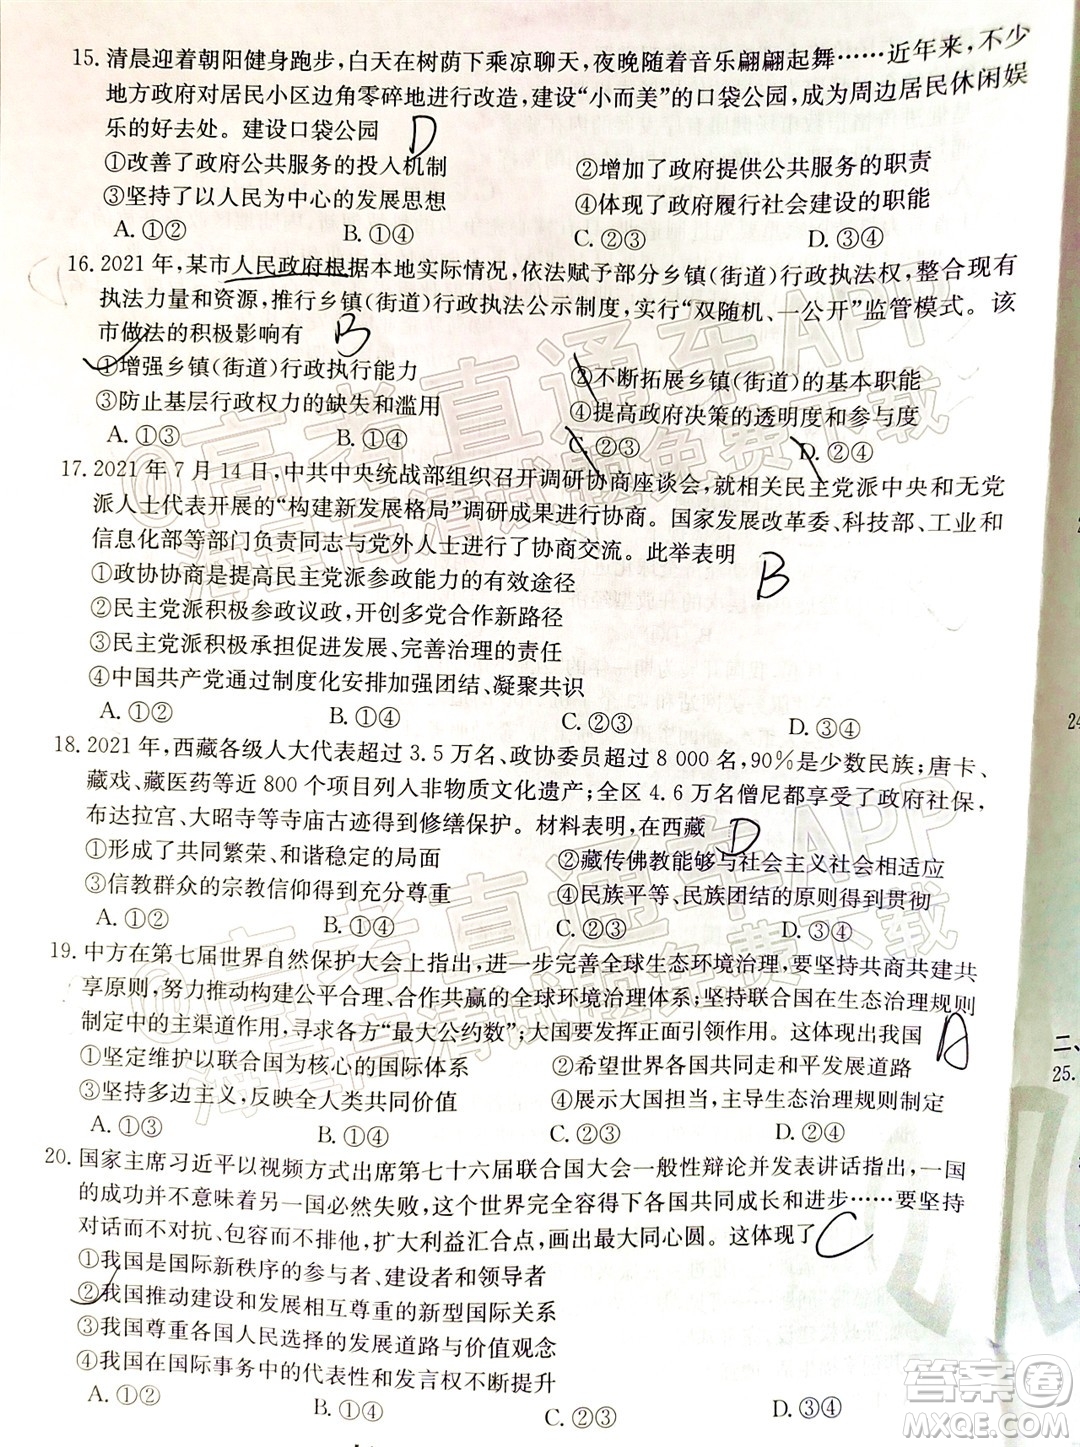 15. 清晨迎着朝阳健身跑步，白天在树荫下乘凉聊天，夜晚随着音乐翩翩起舞……近年来，不少
地方政府对居民小区边角零碎地进行改造，建设“小而美”的口袋公园，成为周边居民休闲娱
乐的好去处。建设口袋公园 D
①改善了政府公共服务的投入机制 ②增加了政府提供公共服务的职责
③坚持了以人民为中心的发展思想 ④体现了政府履行社会建设的职能
A. ①② B. ①④ C. ②③ D. ③④
16. 2021 年，某市人民政府根据本地实际情况，依法赋予部分乡镇(街道)行政执法权，整合现有
执法力量和资源，推行乡镇(街道)行政执法公示制度，实行“双随机、一公开”监管模式。该
市做法的积极影响有 B
①增强乡镇(街道)行政执行能力 ②不断拓展乡镇(街道)的基本职能
③防止基层行政权力的缺失和滥用 ④提高政府决策的透明度和参与度
A. ①③ B. ①④ C. ②③ D. ②④
17. 2021 年 7 月 14 日，中共中央统战部组织召开调研协商座谈会，就相关民主党派中央和无党
派人士代表开展的“构建新发展格局”调研成果进行协商。国家发展改革委、科技部、工业和
信息化部等部门负责同志与党外人士进行了协商交流。此举表明 B
①政协协商是提高民主党派参政能力的有效途径
②民主党派积极参政议政，开创多党合作新路径
③民主党派积极承担促进发展、完善治理的责任
④中国共产党通过制度化安排加强团结、凝聚共识
A. ①② B. ①④ C. ②③ D. ③④
18. 2021 年，西藏各级人大代表超过 3.5 万名、政协委员超过 8 000 名，90%是少数民族；唐卡、
藏戏、藏医药等近 800 个项目列入非物质文化遗产；全区 4.6 万名僧尼都享受了政府社保，
布达拉宫、大昭寺等寺庙古迹得到修缮保护。材料表明，在西藏 D
①形成了共同繁荣、和谐稳定的局面 ②藏传佛教能够与社会主义社会相适应
③信教群众的宗教信仰得到充分尊重 ④民族平等、民族团结的原则得到贯彻
A. ①② B. ①④ C. ②③ D. ③④
19. 中方在第七届世界自然保护大会上指出，进一步完善全球生态环境治理，要坚持共商共建共
享原则，努力推动构建公平合理、合作共赢的全球环境治理体系；坚持联合国在生态治理规则
制定中的主渠道作用，寻求各方“最大公约数”；大国要发挥正面引领作用。这体现出我国 A
①坚定维护以联合国为核心的国际体系 ②希望世界各国共同走和平发展道路
③坚持多边主义，反映全人类共同价值 ④展示大国担当，主导生态治理规则制定
A. ①③ B. ①④ C. ②③ D. ②④
20. 国家主席习近平以视频方式出席第七十六届联合国大会一般性辩论并发表讲话指出，一国
的成功并不意味着另一国必然失败，这个世界完全容得下各国共同成长和进步……要坚持
对话而不对抗、包容而不排他，扩大利益汇合点，画出最大同心圆。这体现了 C
①我国是国际新秩序的参与者、建设者和领导者
②我国推动建设和发展相互尊重的新型国际关系
③我国尊重各国人民选择的发展道路与价值观念
④我国在国际事务中的代表性和发言权不断提升
A. ①② B. ①④ C. ②③ D. ③④
24
二、
25.
@高考直通车APP
海量高清试题免费下载
@高考直通车APP
海量高清试题免费下载
答案圈
MXQE.COM